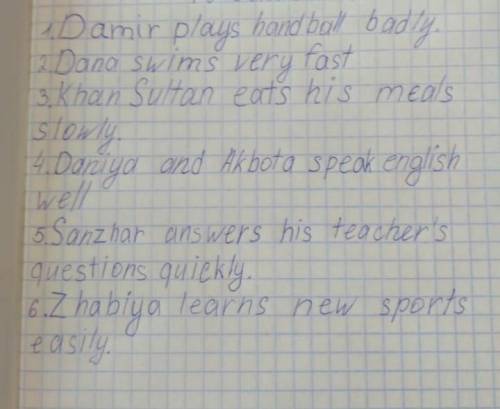 1.Damir plays handball badly.
2.Dana swims very fast
3.Khan Sultan eats his meals
slowly.
4.Daniya and Akbota speak english
well
5.Sanzhar answers his teacher's
questions quickly.
6.Zhabiya learns new sports
easily.